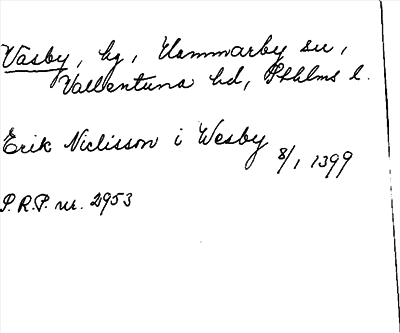 Väsby, hg, Hammarby sn,
Vallentuna hd, Sthlms l.
Erik Niclisson i Wesby 8/1 1399
P.R.P. nr. 2953